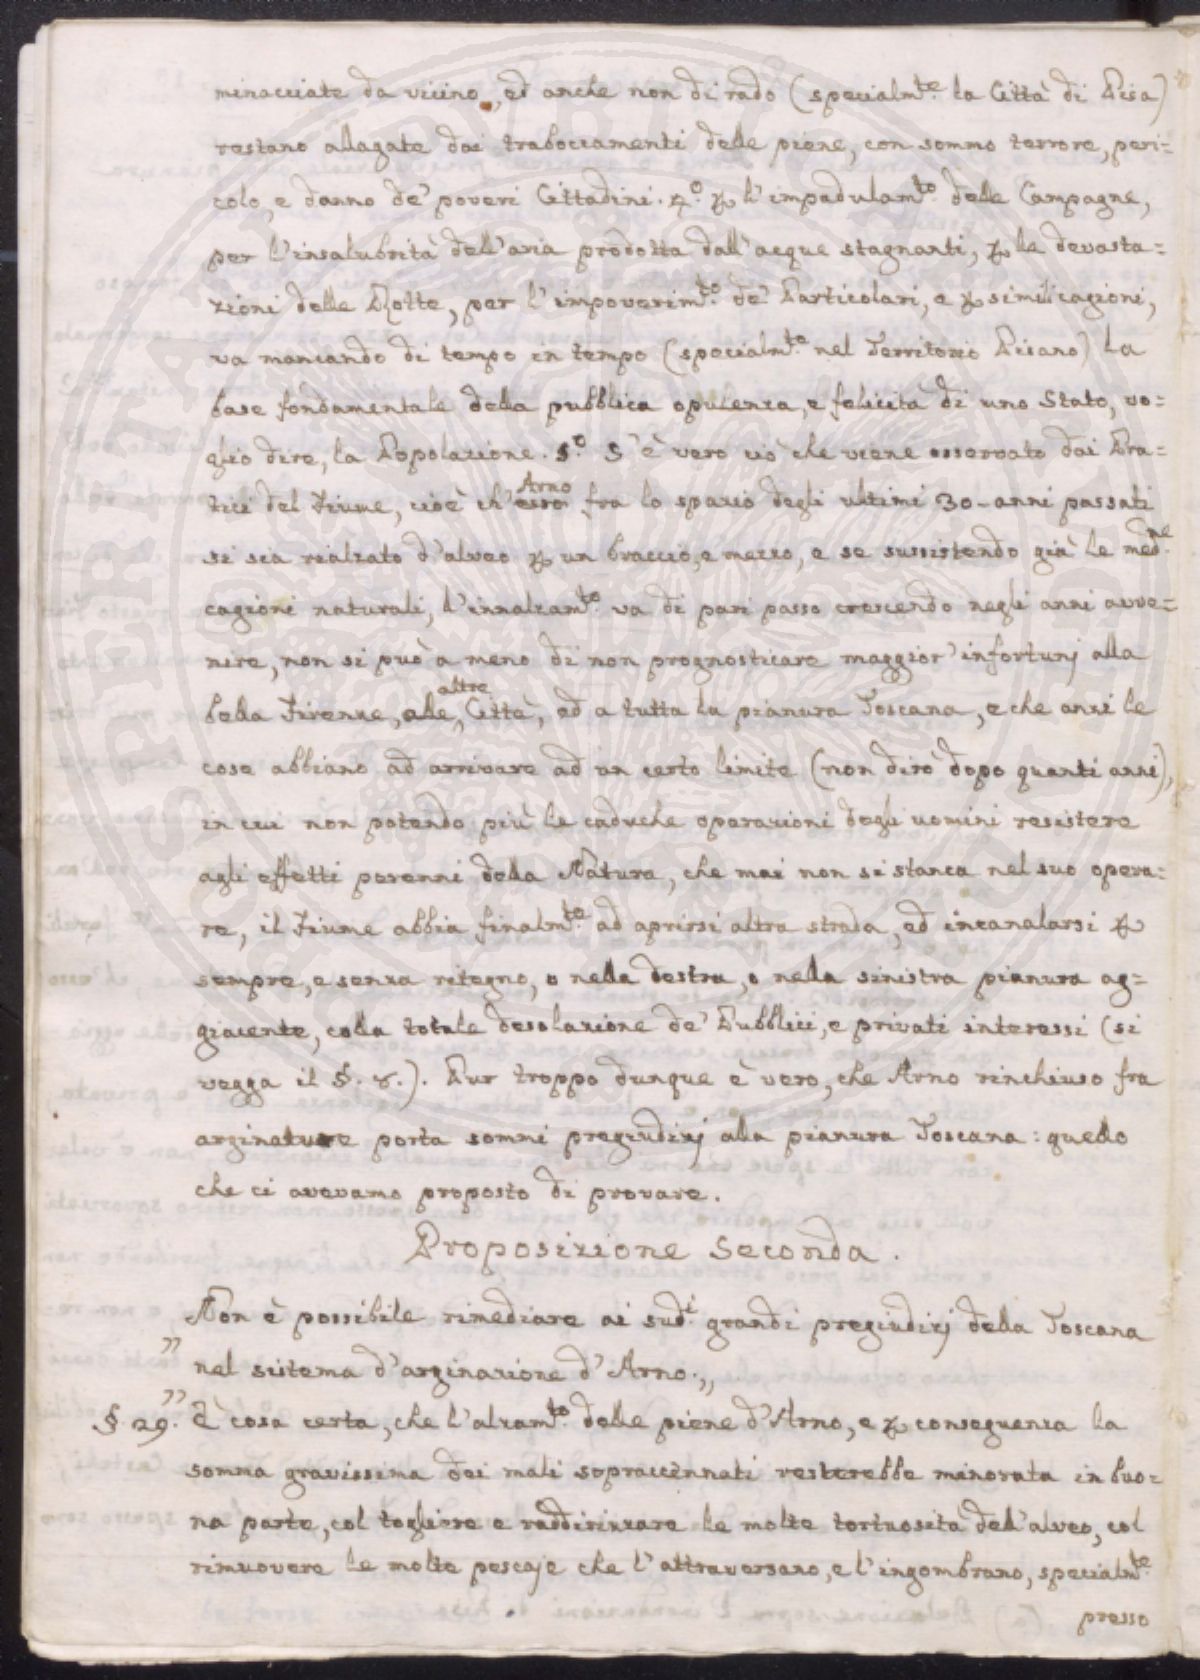 minacciate da vicino, ed anche non di rado (specialm.te la Città di Pisa)
restano allagate dai traboccamenti delle piene, con sommo terrore, peri=
colo, e danno de' poveri Cittadini. 4.o p l'impadulam.to delle Campagne,
per l'insalubrità dell'aria prodotta dall'acque stagnanti, p le devasta=
zioni delle Rotte, per l'impoverim.to de' Particolari, e p simili cagioni,
va mancando di tempo in tempo (specialm.te nel Territorio Pisano) la
base fondamentale della pubblica opulenza, e felicità di uno Stato, vo=
glio dire, la Popolazione. 5.o S'è vero ciò che viene osservato dai Pra=
tici del Fiume, cioè ch' Arno fra lo spazio degli ultimi 30 - anni passati
si sia rialzato d'alveo p un braccio, e mezzo, e se sussistendo già le med.ne
cagioni naturali, l'innalzam.to va di pari passo crescendo negli anni avve=
nire, non si può a meno di non prognosticare maggior' infortunj alla
bella Firenze, alle altre Città, ed a tutta la pianura Toscana, e che anzi le
cose abbiano ad arrivare ad un certo limite (non dirò dopo quanti anni),
in cui non potendo più le caduche operazioni degli uomini resistere
agli effetti perenni della Natura, che mai non si stanca nel suo opera=
re, il Fiume abbia finalm.te ad aprirsi altra strada, ed incanalarsi p
sempre, e senza ritegno, o nella destra, o nella sinistra pianura ag=
giacente, colla totale desolazione de' Pubblici, e privati interessi (si
vegga il §. 8.). Pur troppo dunque è vero, che Arno rinchiuso fra
arginature porta sommi pregiudizj alla pianura Toscana: quello
che ci avevamo proposto di provare.
Proposizione Seconda.
Non è possibile rimediare ai sud.i grandi pregiudizj della Toscana
" nel sistema d'arginazione d'Arno.,,
§. 29. " È cosa certa, che l'alzam.to delle piene d'Arno, e p conseguenza la
somma gravissima dei mali sopraccennati resterebbe minorata in buo=
na parte, col togliere e raddirizzare le molte tortuosità dell'alveo, col
rimuovere le molte pescaje che l'attraversano, e l'ingombrano, specialm.te
presso